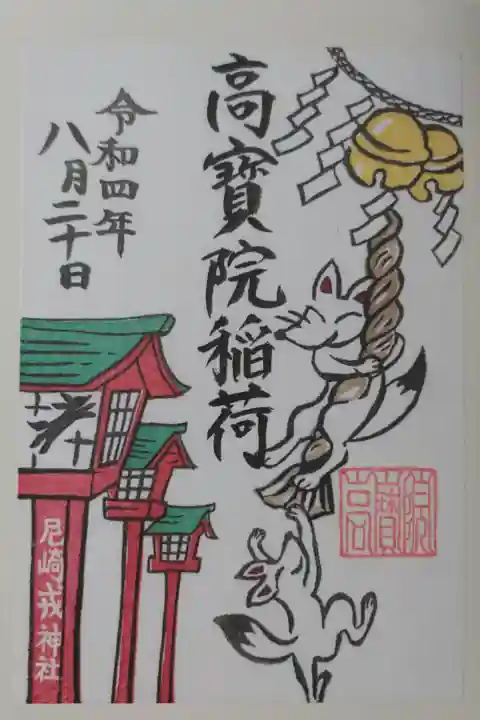 高寶院稲荷
令和四年
八月二十日
尼崎戎神社
高寶院